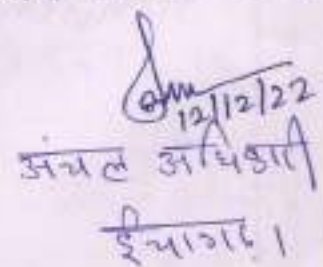 12/12/22
अंचल अधिकारी
ईचागढ़।